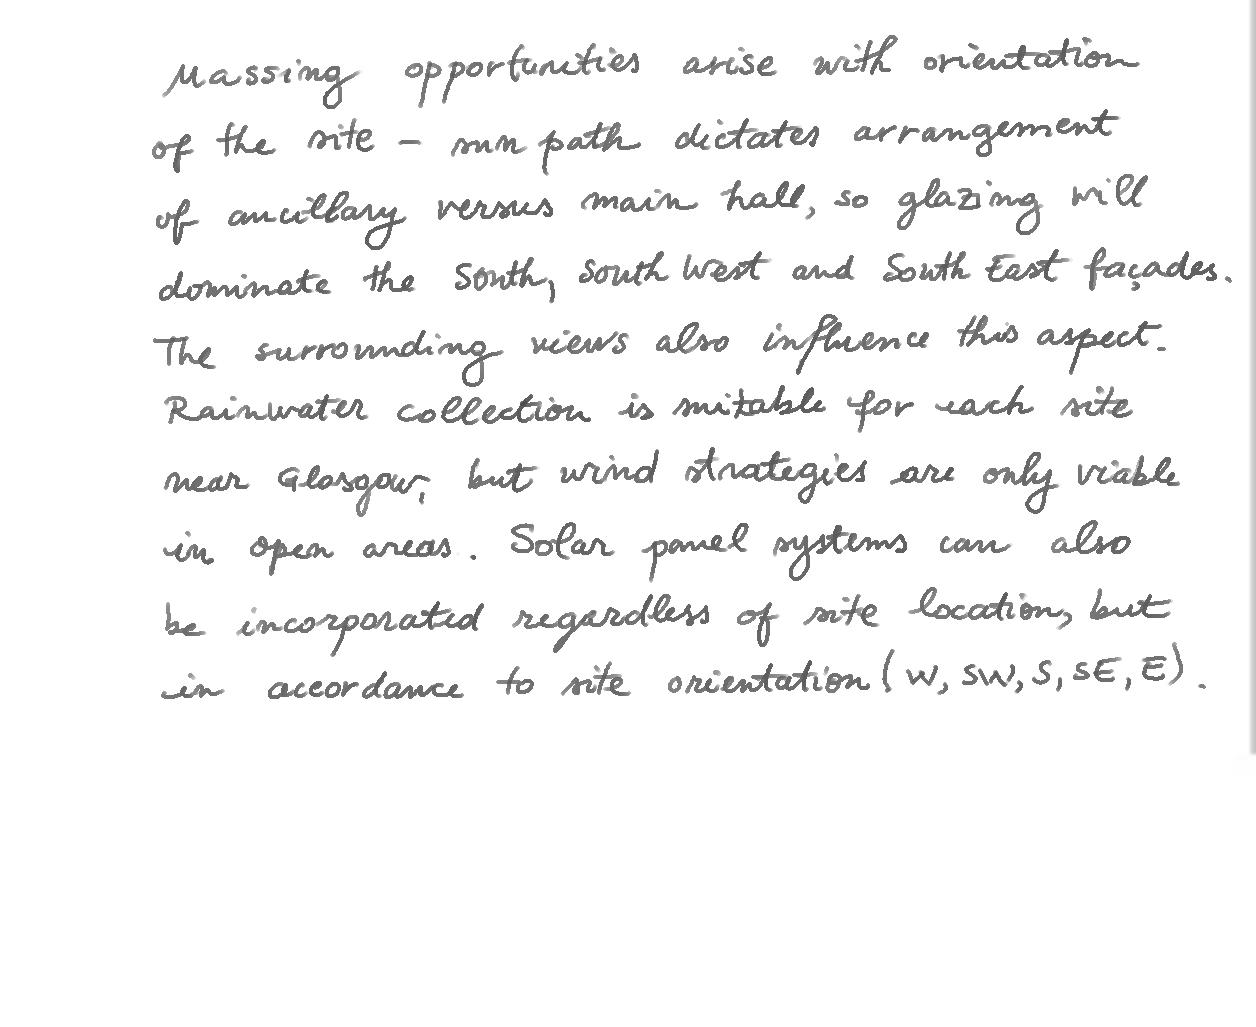 Massing opportunities arise with orientation
of the site - sun path dictates arrangement
of ancillary versus main hall, so glazing will
dominate the South, South West and South East façades.
The surrounding views also influence this aspect.
Rainwater collection is suitable for each site
near Glasgow, but wind strategies are only viable
in open areas. Solar panel systems can also
be incorporated regardless of site location, but
in accordance to site orientation (W, SW, S, SE, E).